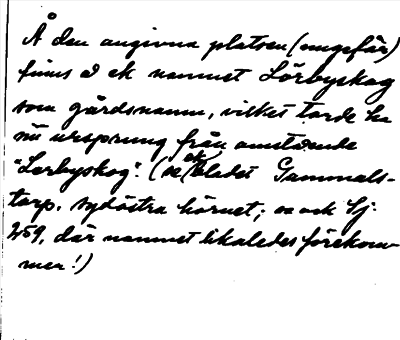 Å den angivna platsen (ungefär)
finns å ek namnet Lörbyskog
som gårdsnamn, vilket torde ha
sitt ursprung från omstående
"Lörbyskog". (se ek bladet Gammals-
torp, sydöstra hörnet; se ock Lj:
259, där namnet likaledes förekom-
mer!)